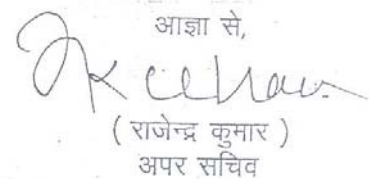 आज्ञा से,
( राजेन्द्र कुमार )
अपर सचिव